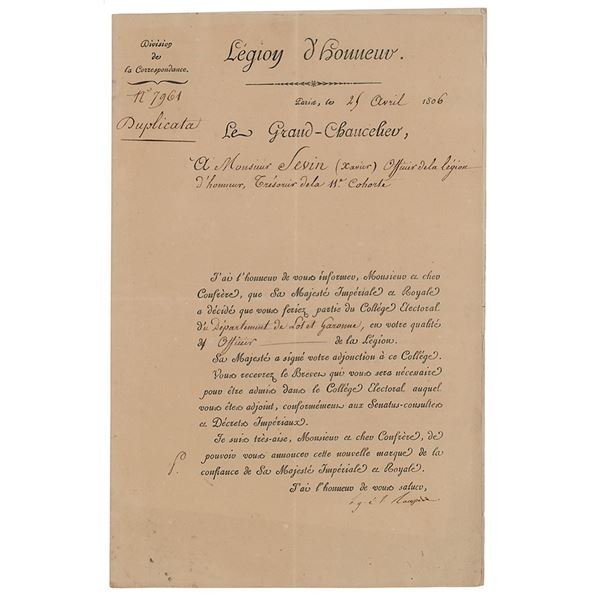 Division
de
la Correspondance.
N.° 7961
Duplicata
Légion d'honneur.
Paris, le 25 Avril 1806
Le Grand-Chancelier,
A Monsieur Sevin (Xavier) Officier de la légion
d'honneur, Trésorier de la 11.e Cohorte
J'ai l'honneur de vous informer, Monsieur et cher
Confrère, que Sa Majesté Impériale et Royale
a décidé que vous feriez partie du Collège Electoral
du Département de Lot et Garonne, en votre qualité
d'Officier de la Légion.
Sa Majesté a signé votre adjonction à ce Collège.
Vous recevrez le Brevet qui vous sera nécessaire
pour être admis dans le Collège Electoral auquel
vous êtes adjoint, conformément aux Senatus-consultes
et Décrets Impériaux.
Je suis très-aise, Monsieur et cher Confrère, de
pouvoir vous annoncer cette nouvelle marque de la
confiance de Sa Majesté Impériale et Royale.
J'ai l'honneur de vous saluer,